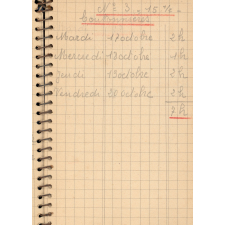 N° 3
Mardi 17 octobre 2h
Mercredi 18 octobre 1h
Jeudi 19 octobre 2h
Vendredi 20 octobre 2h
7h